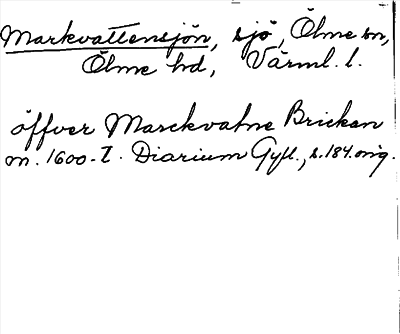 Markvattensjön, sjö, Ölme sn,
Ölme hd, Värml. l.
öffver Marckvatne Bricken
m. 1600-t. Diarium Gyll., s. 184. orig.